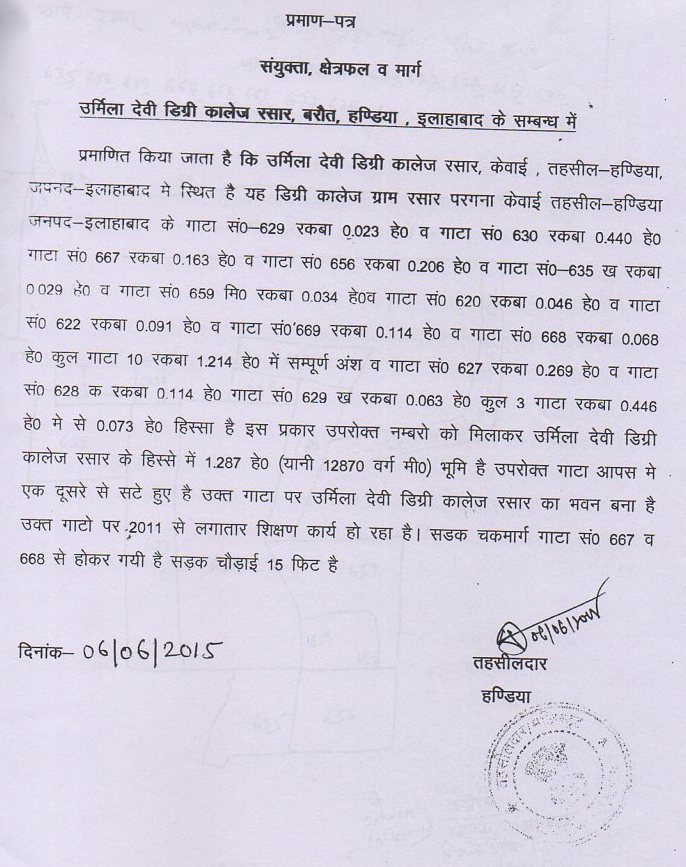 प्रमाण–पत्र
संयुक्ता, क्षेत्रफल व मार्ग
उर्मिला देवी डिग्री कालेज रसार, बरौत, हण्डिया , इलाहाबाद के सम्बन्ध में
प्रमाणित किया जाता है कि उर्मिला देवी डिग्री कालेज रसार, केवाई , तहसील–हण्डिया,
जपनद–इलाहाबाद मे स्थित है यह डिग्री कालेज ग्राम रसार परगना केवाई तहसील–हण्डिया
जनपद–इलाहाबाद के गाटा सं0–629 रकबा 0.023 हे0 व गाटा सं0 630 रकबा 0.440 हे0
गाटा सं0 667 रकबा 0.163 हे0 व गाटा सं0 656 रकबा 0.206 हे0 व गाटा सं0–635 ख रकबा
0.029 हे0 व गाटा सं0 659 मि0 रकबा 0.034 हे0व गाटा सं0 620 रकबा 0.046 हे0 व गाटा
सं0 622 रकबा 0.091 हे0 व गाटा सं0 669 रकबा 0.114 हे0 व गाटा सं0 668 रकबा 0.068
हे0 कुल गाटा 10 रकबा 1.214 हे0 में सम्पूर्ण अंश व गाटा सं0 627 रकबा 0.269 हे0 व गाटा
सं0 628 क रकबा 0.114 हे0 गाटा सं0 629 ख रकबा 0.063 हे0 कुल 3 गाटा रकबा 0.446
हे0 मे से 0.073 हे0 हिस्सा है इस प्रकार उपरोक्त नम्बरो को मिलाकर उर्मिला देवी डिग्री
कालेज रसार के हिस्से में 1.287 हे0 (यानी 12870 वर्ग मी0) भूमि है उपरोक्त गाटा आपस मे
एक दूसरे से सटे हुए है उक्त गाटा पर उर्मिला देवी डिग्री कालेज रसार का भवन बना है
उक्त गाटो पर 2011 से लगातार शिक्षण कार्य हो रहा है। सडक चकमार्ग गाटा सं0 667 व
668 से होकर गयी है सड़क चौड़ाई 15 फिट है
दिनांक– 06/06/2015
तहसीलदार
हण्डिया